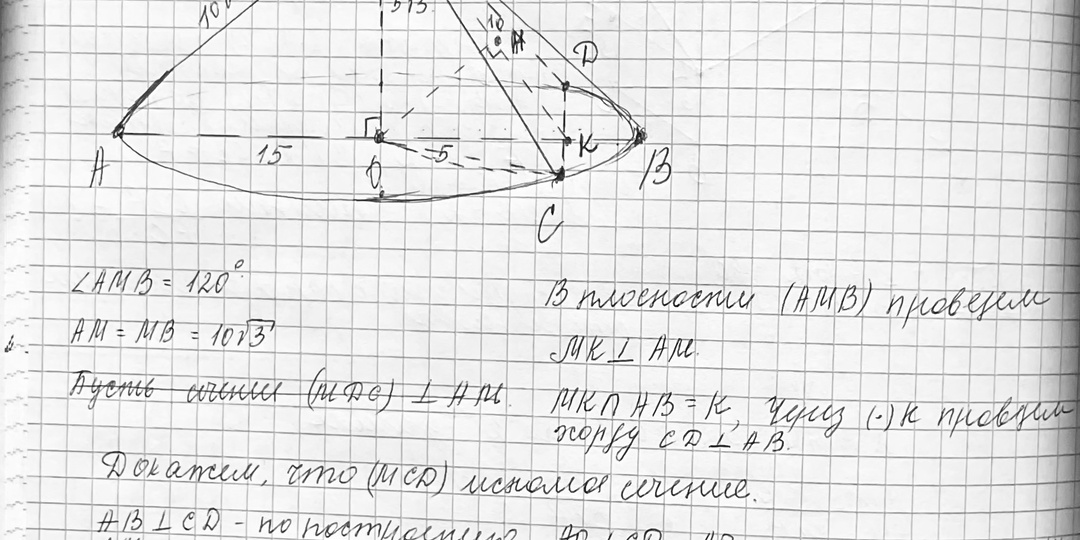 10√
5√3
10
H
D
A
15
O
5
K
B
C
∠AMB = 120°
AM = MB = 10√3
Пусть сечение (MDC) ⊥ AM.
В плоскости (AMB) проведем
MK ⊥ AM.
MK ∩ AB = K, Через (·) K проведем
хорду CD ⊥ AB.
Докажем, что (MCD) искомое сечение.
AB ⊥ CD - по построению